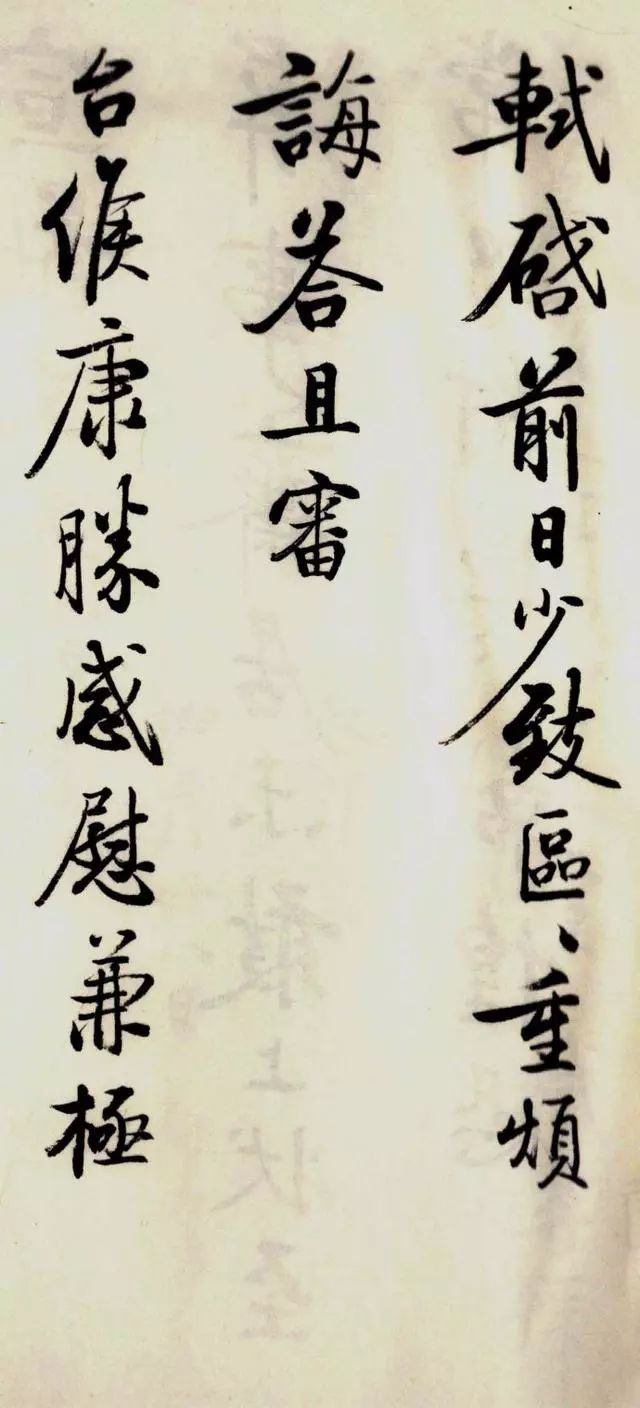 軾啓前日少致區、重煩
誨荅且審
台候康勝感慰兼極